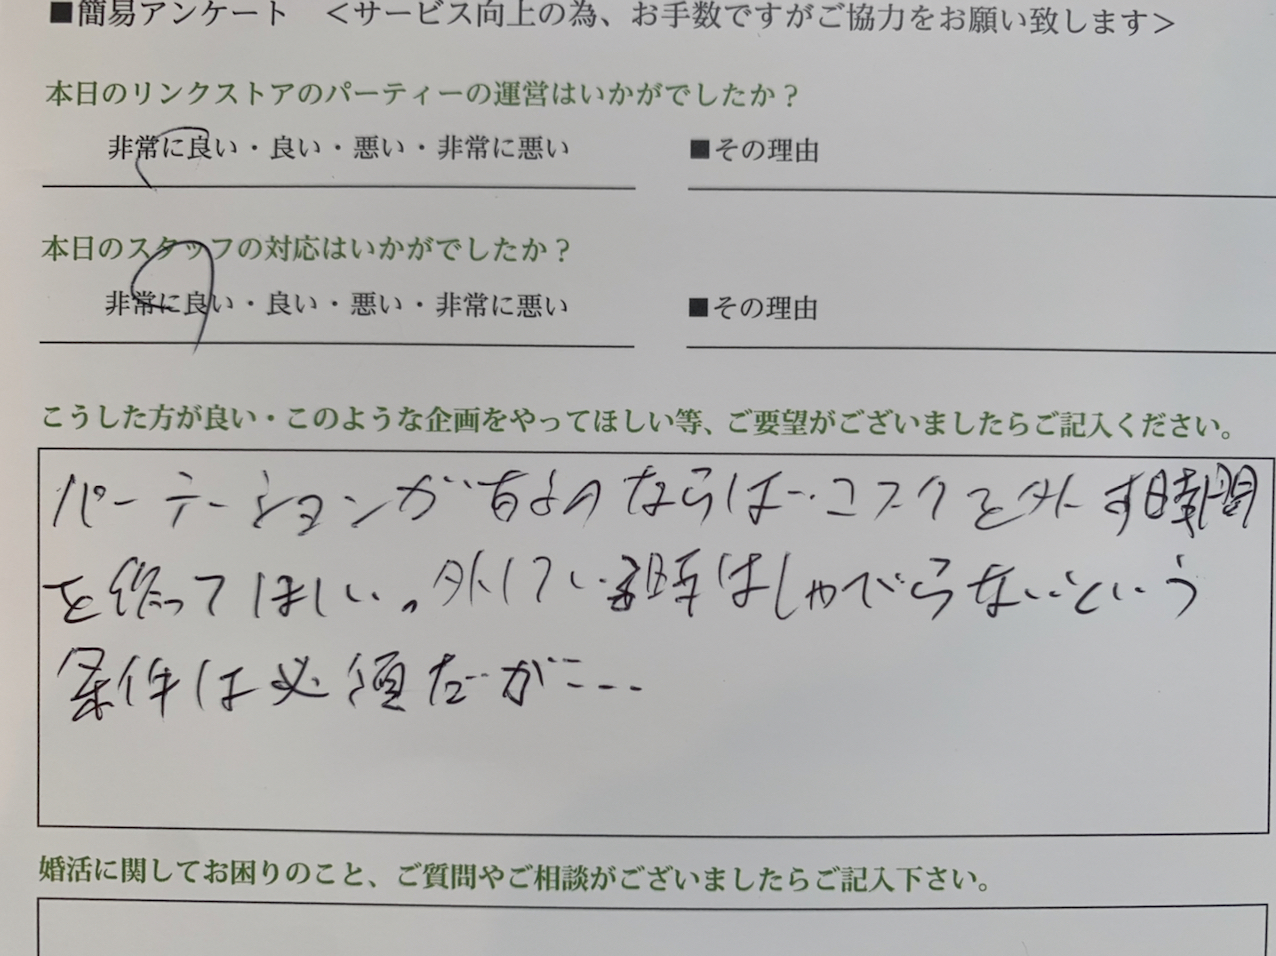 ■簡易アンケート ＜サービス向上の為、お手数ですがご協力をお願い致します＞
本日のリンクストアのパーティーの運営はいかがでしたか？
非常に良い・良い・悪い・非常に悪い ■その理由
本日のスタッフの対応はいかがでしたか？
非常に良い・良い・悪い・非常に悪い ■その理由
こうした方が良い・このような企画をやってほしい等、ご要望がございましたらご記入ください。
パーテーションが有るのならば、マスクを外す時間
を作ってほしい。外している時はしゃべらないという
条件は必須だが…
婚活に関してお困りのこと、ご質問やご相談がございましたらご記入下さい。